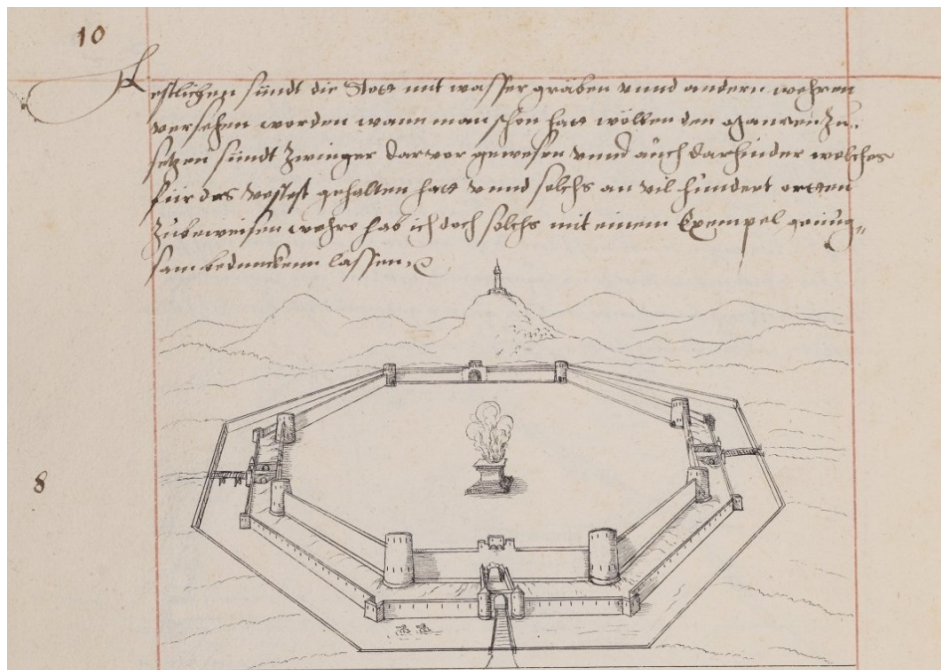 10
Lestlichen sündt die Stett mit wasser gräben vnnd andern wehren
versehen worden wann man schon hatt wöllen den Mauren zu
setzen sündt Zwinger darvor gewesen vnnd auch darhinder welches
für das vestest gehalten hatt vnnd solchs an vil hundert ortten
Zubeweisen wehre hab ich doch solchs mit einem Exempel genüg„
sam beduncken lassen
8